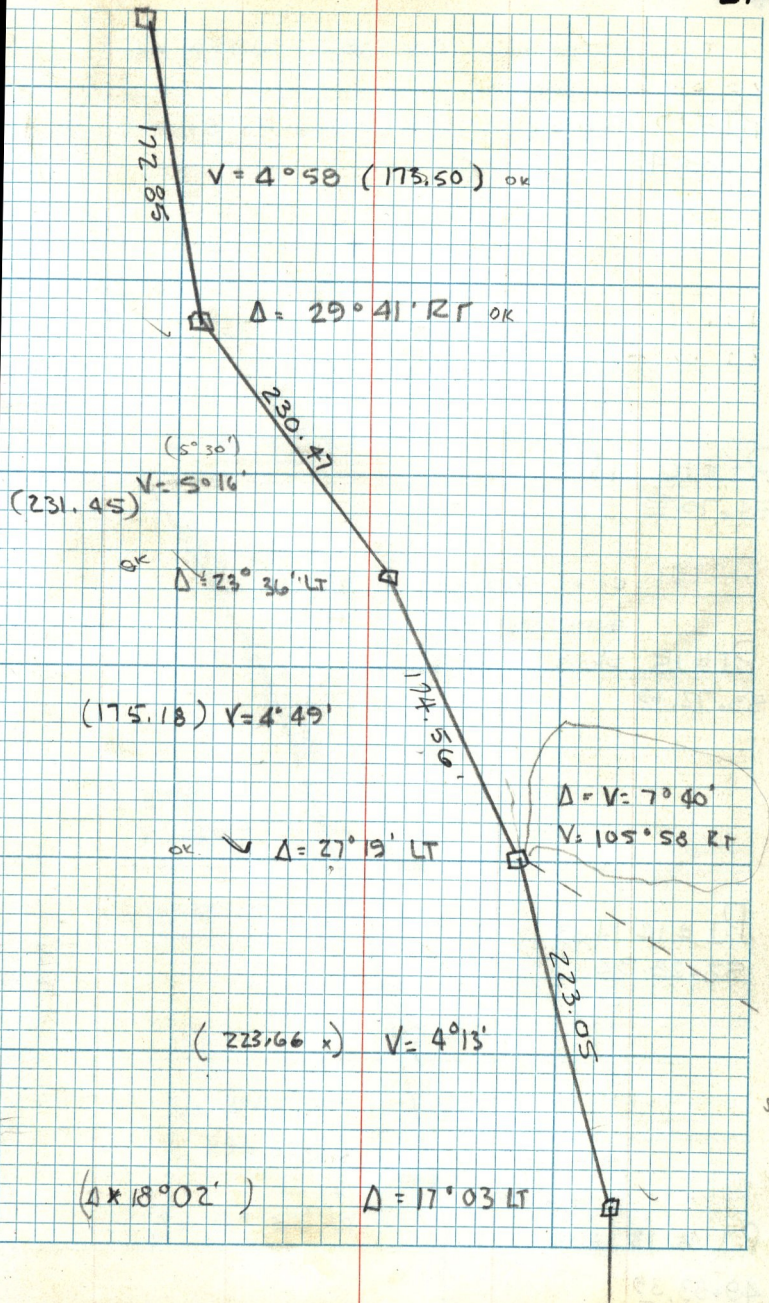 172.85
V = 4°58 (173.50) OK
Δ = 29°41' RT OK
230.47
(5°30')
V = 5°16'
(231.45)
OK
Δ = 23° 36' LT
174.56
(175.18) V = 4°49'
Δ = V = 7°40'
V = 105°58 RT
OK Δ = 27°19' LT
223.05
(223.66 x) V = 4°13'
(Δ * 18°02') Δ = 17°03 LT